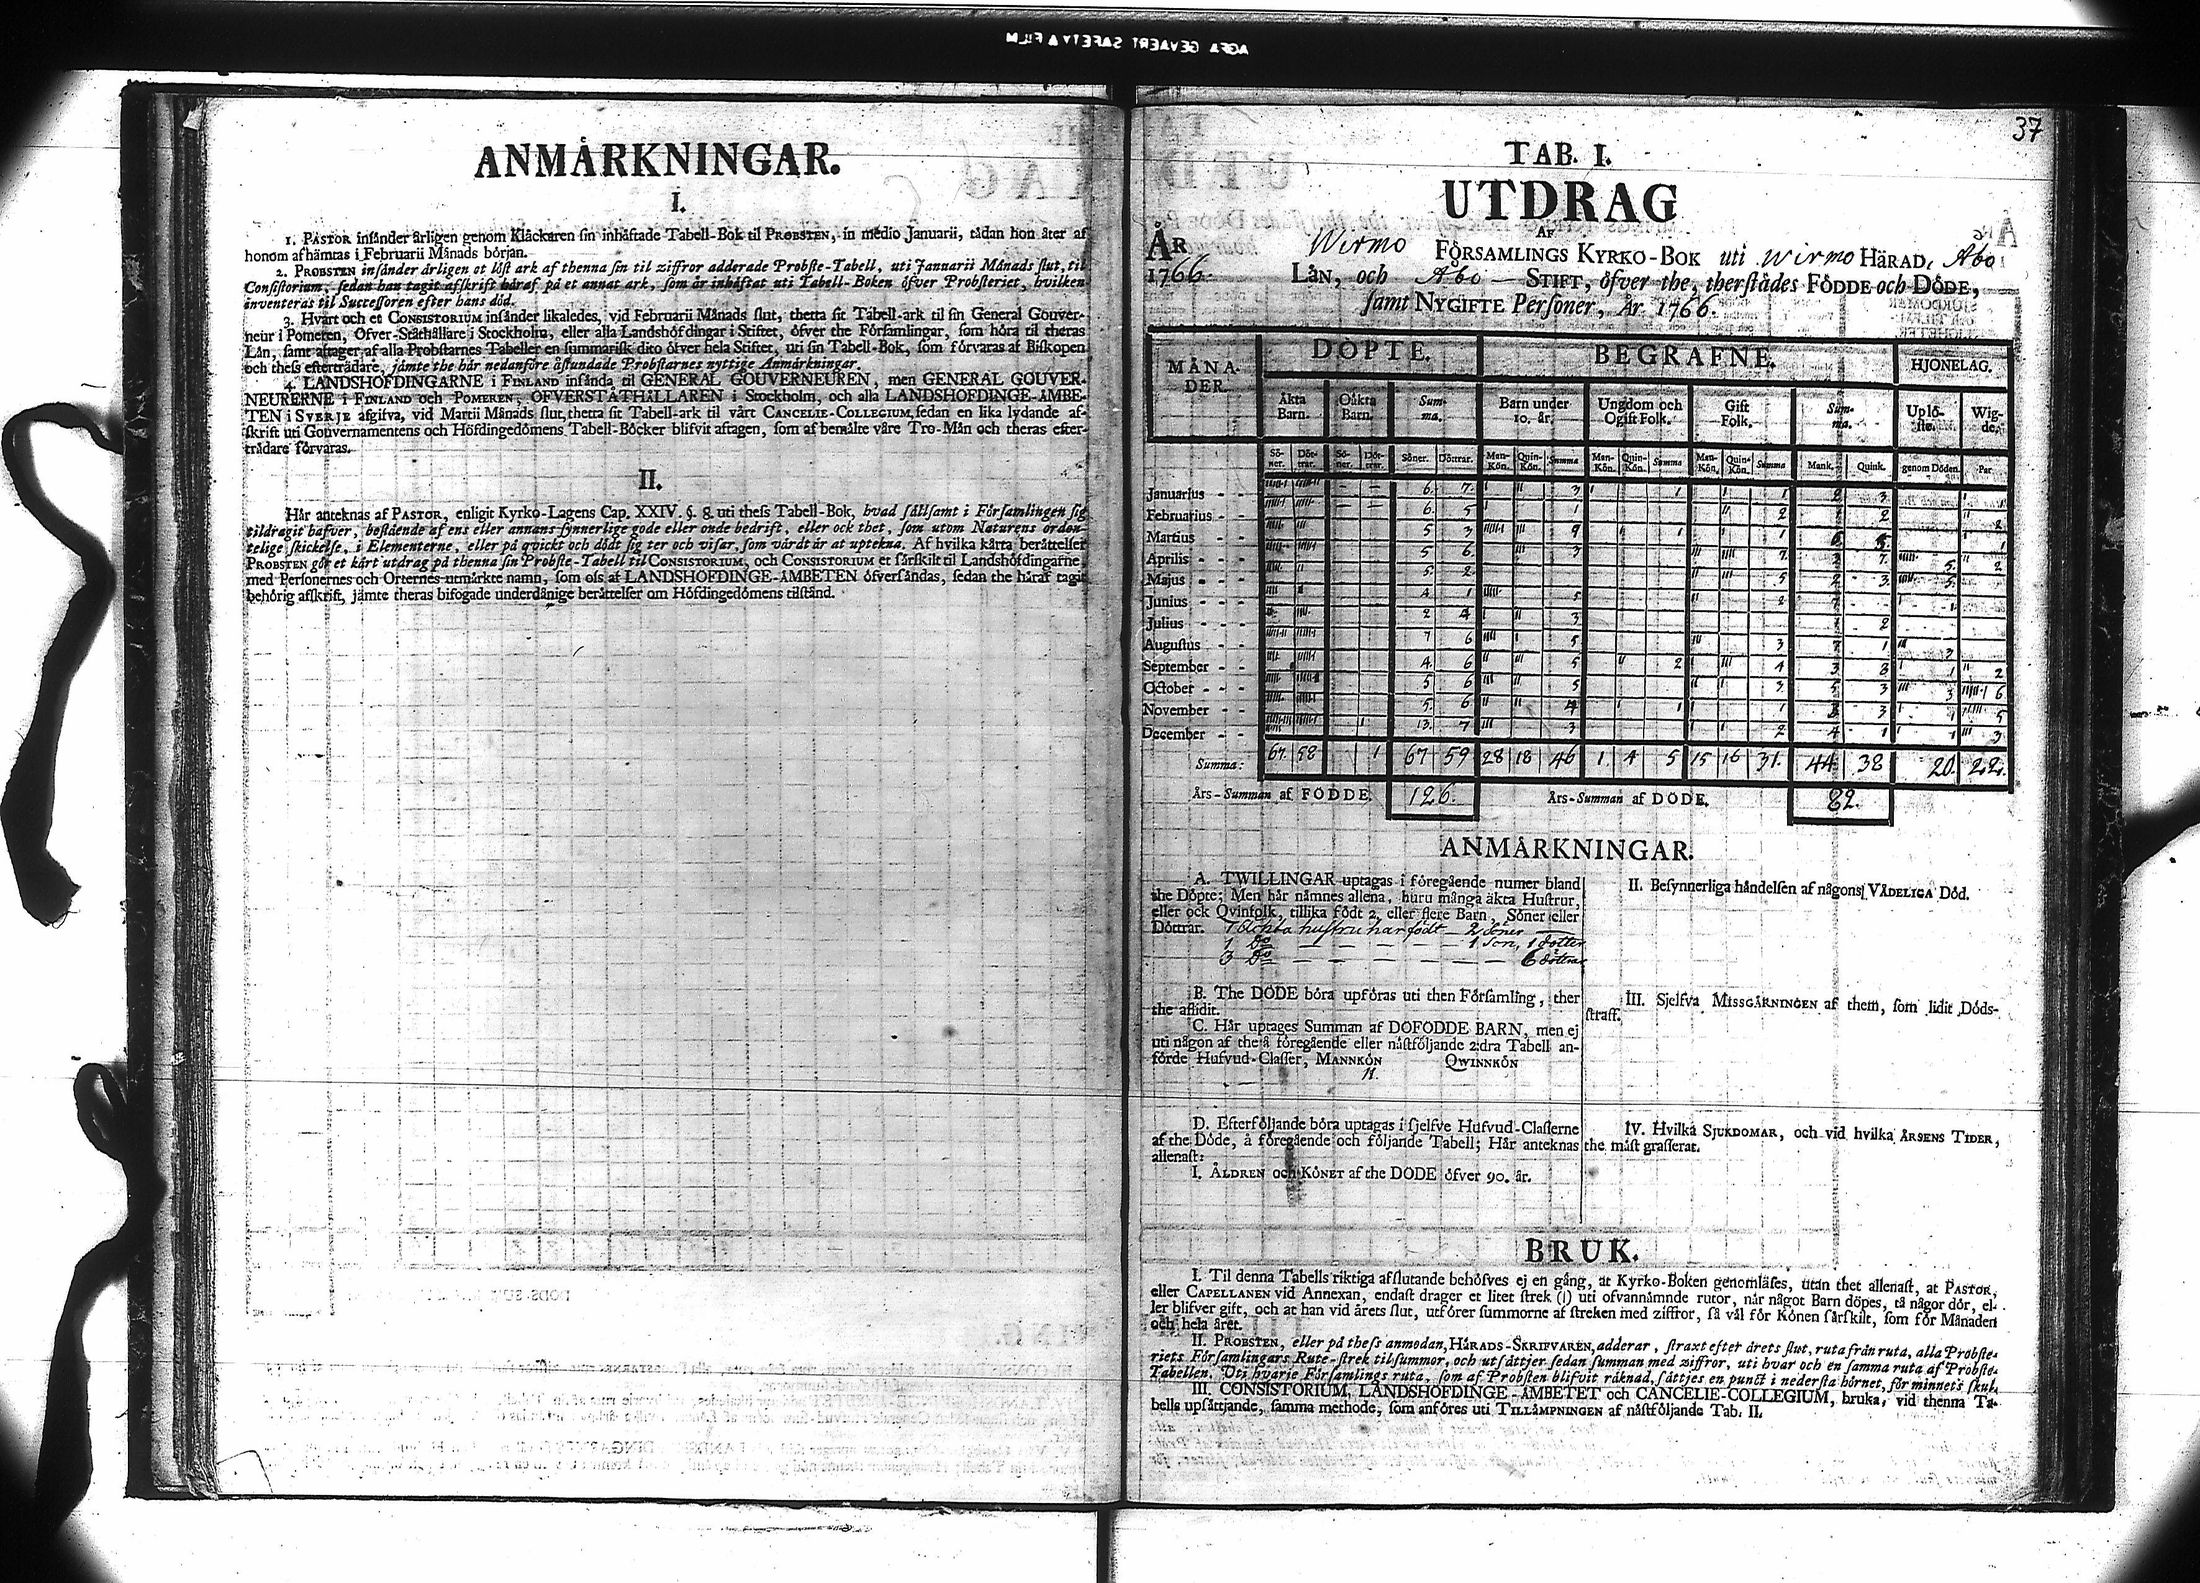 AGFA GEVAERT SAFETY A FILM
ANMÅRKNINGAR.
I.
1. PASTOR insånder årligen genom Klåckaren sin inhåftade Tabell-Bok til PROBSTEN, in medio Januarii, tådan hon åter af
honom afhämtas i Februarii Månads början.
2. PROBSTEN insånder årligen et löst ark af thenna sin til ziffror adderade Probste-Tabell, uti Januarii Månads slut, til
Consistorium, sedan han tagit afskrift håraf på et annat ark, som år inhåftat uti Tabell-Boken öfver Probsteriet, hvilken
inventeras til Successoren efter hans död.
3. Hvart och et CONSISTORIUM insånder likaledes, vid Februarii Månads slut, thetta sit Tabell-ark til sin General Gouver-
neur i Pomeren, Öfver-Ståthållare i Stockholm, eller alla Landshöfdingar i Stiftet, öfver the Församlingar, som höra til theras
Lån, samt aftager af alla Probstarnes Tabeller en summarisk dito öfver hela Stiftet, uti sin Tabell-Bok, som förvaras af Biskopen
och thess efterträdare, jämte the hår nedanföre åstundade Probstarnes nyttige Anmårkningar.
4. LANDSHÖFDINGARNE i FINLAND insånda til GENERAL GOUVERNEUREN, men GENERAL GOUVER-
NEURERNE i FINLAND och POMEREN, ÖFVERSTÅTHÅLLAREN i Stockholm, och alla LANDSHÖFDINGE-ÅMBE-
TEN i SVERJE afgifva, vid Martii Månads slut, thetta sit Tabell-ark til vårt CANCELIE-COLLEGIUM, sedan en lika lydande af-
skrift uti Gouvernamentens och Höfdingedömens Tabell-Böcker blifvit aftagen, som af bemålte våre Tro-Mån och theras efter-
trådare förvaras.
II.
Hår anteknas af PASTOR, enligit Kyrko-Lagens Cap. XXIV. §. 8. uti thess Tabell-Bok, hvad sållsamt i Församlingen sig
tildragit hafver, bestående af ens eller annans synnerlige gode eller onde bedrift, eller ock thet, som utom Naturens orden-
telige skickelse, i Elementerne, eller på qvickt och dödt sig ter och visar, som vårdt år at uptekna. Af hvilka kårta beråttelser
PROBSTEN gör et kårt utdrag på thenna sin Probste-Tabell til CONSISTORIUM, och CONSISTORIUM et särskilt til Landshöfdingarne,
med Personernes och Orternes utmårkte namn, som oss af LANDSHÖFDINGE-ÅMBETEN öfversåndas, sedan the håraf tagit
behörig afskrift, jämte theras bifogade underdånige beråttelser om Höfdingedömens tilstånd.
37
TAB. I.
UTDRAG
AF
ÅR 1766. Wirmo FÖRSAMLINGS KYRKO-BOK uti Wirmo HÄRAD, Åbo
LÅN, och Åbo STIFT, öfver the, therstådes FÖDDE och DÖDE,
samt NYGIFTE Personer, År 1766.
MÅNA-DER. DÖPTE. BEGRAFNE. HJONELAG.
Åkta Barn. Oåkta Barn. Summa. Barn under 10. år. Ungdom och Ogift Folk. Gift Folk. Summa. Uplöste. Wigde.
Söner. Döttrar. Söner. Döttrar. Söner. Döttrar. Man-Kön. Quin-Kön. Summa Man-Kön. Quin-Kön. Summa Man-Kön. Quin-Kön. Summa Mank. Quink. genom Döden. Par.
Januarius - - 6. 7. 3 1 1 2 3
Februarius - - 6. 5 1 2 2 2
Martius - - 5 3 9 1 1
Aprilis - - 5 6. 3 7 7. 5. 2
Majus - - 5. 2 5 2 3. 5.
Junius - - 4 1 5 2
Julius - - 2 4 3 2
Augustus - - 7 6 5 3 7 1
September - - 4. 6 5 2 4 3 8 1 2
October - - 5 6 5 3 5 3 3 6
November - - 5. 6 4 1 1 3 3 1 5
December - - 13. 7 3 2 4 1 1 3
Summa: 67. 58 1 67 59 28 18 46 1. 4 5 15 16 31. 44 38 20. 22.
Års-Summan af FÖDDE. 126. Års-Summan af DÖDE. 82.
ANMÅRKNINGAR.
A. TWILLINGAR uptagas i föregående numer bland
the Döpte; Men hår nåmnes allena, huru många åkta Hustrur,
eller ock Qvinfolk, tillika födt 2. eller flere Barn, Söner eller
Döttrar. 1 Ächta hustru har födt - 2 Söner
1 Do - - - - - 1 Son, 1 dotter
3 Do - - - - - 6 döttrar
B. The DÖDE böra upföras uti then Församling, ther
the aflidit.
C. Hår uptages Summan af DÖFÖDDE BARN, men ej
uti någon af the å föregående eller nåstföljande 2:dra Tabell an-
förde Hufvud-Classer, MANNKÖN QWINNKÖN
11.
D. Efterföljande böra uptagas i sjelfve Hufvud-Classerne
af the Döde, å föregående och följande Tabell; Hår anteknas
allenast:
I. ÅLDREN och KÖNET af the DÖDE öfver 90. år.
II. Besynnerliga håndelsen af någons VÅDELIGA Död.
III. Sjelfva MISSGÅRNINGEN af them, som lidit Döds-
straff.
IV. Hvilka SJUKDOMAR, och vid hvilka ÅRSENS TIDER,
the måst grasserat.
BRUK.
I. Til denna Tabells riktiga afslutande behöfves ej en gång, at Kyrko-Boken genomläses, utan thet allenast, at PASTOR,
eller CAPELLANEN vid Annexan, endast drager et litet strek (|) uti ofvannåmnde rutor, når något Barn döpes, tå någor dör, el-
ler blifver gift, och at han vid årets slut, utförer summorne af streken med ziffror, så vål för Könen sårskilt, som för Månaden
och hela året.
II. PROBSTEN, eller på thess anmodan, HÅRADS-SKRIFVAREN, adderar, straxt efter årets slut, ruta från ruta, alla Probste-
riets Församlingars Rute-strek tilsummor, och utsåttjer sedan summan med ziffror, uti hvar och en samma ruta af Probste-
Tabellen. Uti hvarje Församlings ruta, som af Probsten blifvit råknad, såttjes en punct i nedersta hörnet, för minnets skul.
III. CONSISTORIUM, LANDSHÖFDINGE-ÅMBETET och CANCELIE-COLLEGIUM, bruka, vid thenna Ta-
bells upsåttjande, samma methode, som anföres uti TILLÅMPNINGEN af nåstföljande Tab. II.